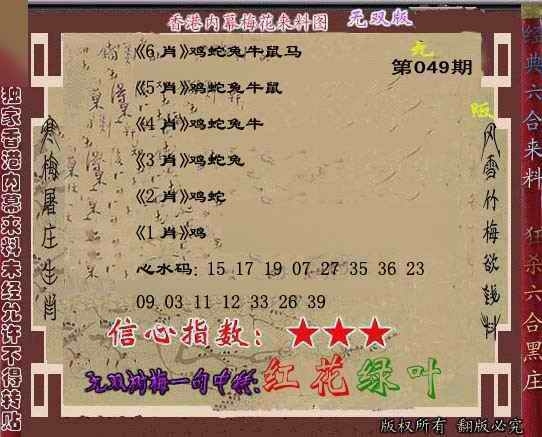 香港内幕梅花来料图 无双版
第049期
《6 肖》鸡蛇兔牛鼠马
《5 肖》鸡蛇兔牛鼠
《4 肖》鸡蛇兔牛
《3 肖》鸡蛇兔
《2 肖》鸡蛇
《1 肖》鸡
心水码: 15 17 19 07 27 35 36 23
09 03 11 12 33 26 39
信心指数: ★★★
一句中特: 红花绿叶
版权所有 翻版必究
独家香港内幕来料未经允许不得转贴
寒梅屠庄生肖
风雪竹梅欲钱料
经典六合来料 狂杀六合黑庄